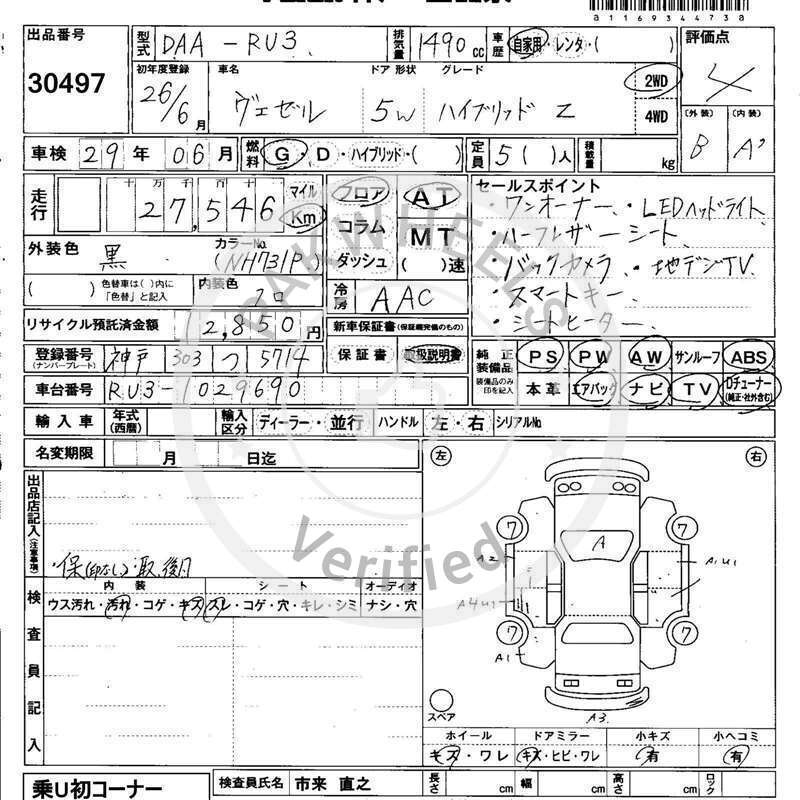 a116934473a
出品番号 30497
型式 DAA-RU3 排気量 1490cc 車歴 自家用・レンタ・( ) 評価点 4
初年度登録 26/6月 車名 ヴェゼル ドア 形状 5W グレード ハイブリッド Z 2WD 4WD
(外装) B (内装) A'
車検 29年06月 燃料 G・D・ハイブリッド・( ) 定員 5( )人 積載量 kg
走行 十万千百十 27,546 マイル Km フロア コラム ダッシュ AT MT ( )速
セールスポイント
・ワンオーナー、・LEDヘッドライト
・ハーフレザーシート
・バックカメラ ・地デジTV
・スマートキー
・シートヒーター
外装色 黒 カラーNo. (NH731P)
( ) 色替車は( )内に「色替」と記入 内装色 クロ 冷房 AAC
リサイクル預託済金額 2,850円 新車保証書(保証継続完備のもの)
保証書 取扱説明書
登録番号 (ナンバープレート) 神戸 303 つ 5714
純正装備品 装備品のみ印を記入 PS PW AW サンルーフ ABS
本革 エアバッグ ナビ TV Dチューナー(純正・社外含む)
車台番号 RU3-1029690
輸入車 年式(西暦) 輸入区分 ディーラー・並行 ハンドル 左・右 シリアルNo.
名変期限 月 日迄
出品店記入(注意事項)
・保(印なし)取後日
検査員記入
内装 シート オーディオ
ウス汚れ・汚れ・コゲ・キズ スレ・コゲ・穴・キレ・シミ ナシ・穴
左 右
7 7
A
A2 A1U1
A4U1
7 7
A1
スペア A3
ホイール ドアミラー 小キズ 小ヘコミ
キズ・ワレ キズ・ヒビ・ワレ 有 有
乗U初コーナー 検査員氏名 市来 直之 長さ cm 幅 cm 高さ cm ロック
PAKWHEELS
Verified